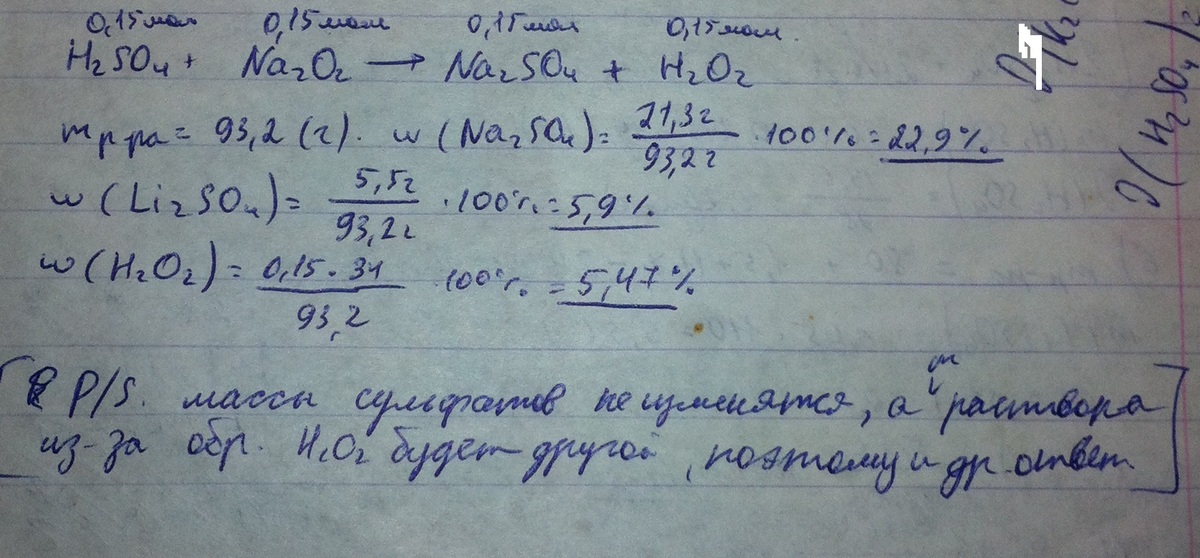 0,15моль 0,15моль 0,15моль 0,15моль.
H₂SO₄ + Na₂O₂ → Na₂SO₄ + H₂O₂
m р-ра = 93,2 (г). w (Na₂SO₄) = 21,3г / 93,2г · 100% = 22,9%
w (Li₂SO₄) = 5,5г / 93,2г · 100% = 5,9%
w (H₂O₂) = 0,15 · 34 / 93,2 · 100% = 5,47%
[P/S. массы сульфатов не изменятся, а m раствора
из-за обр. H₂O₂ будет другой, поэтому и др. ответ.]
(H₂SO₄)